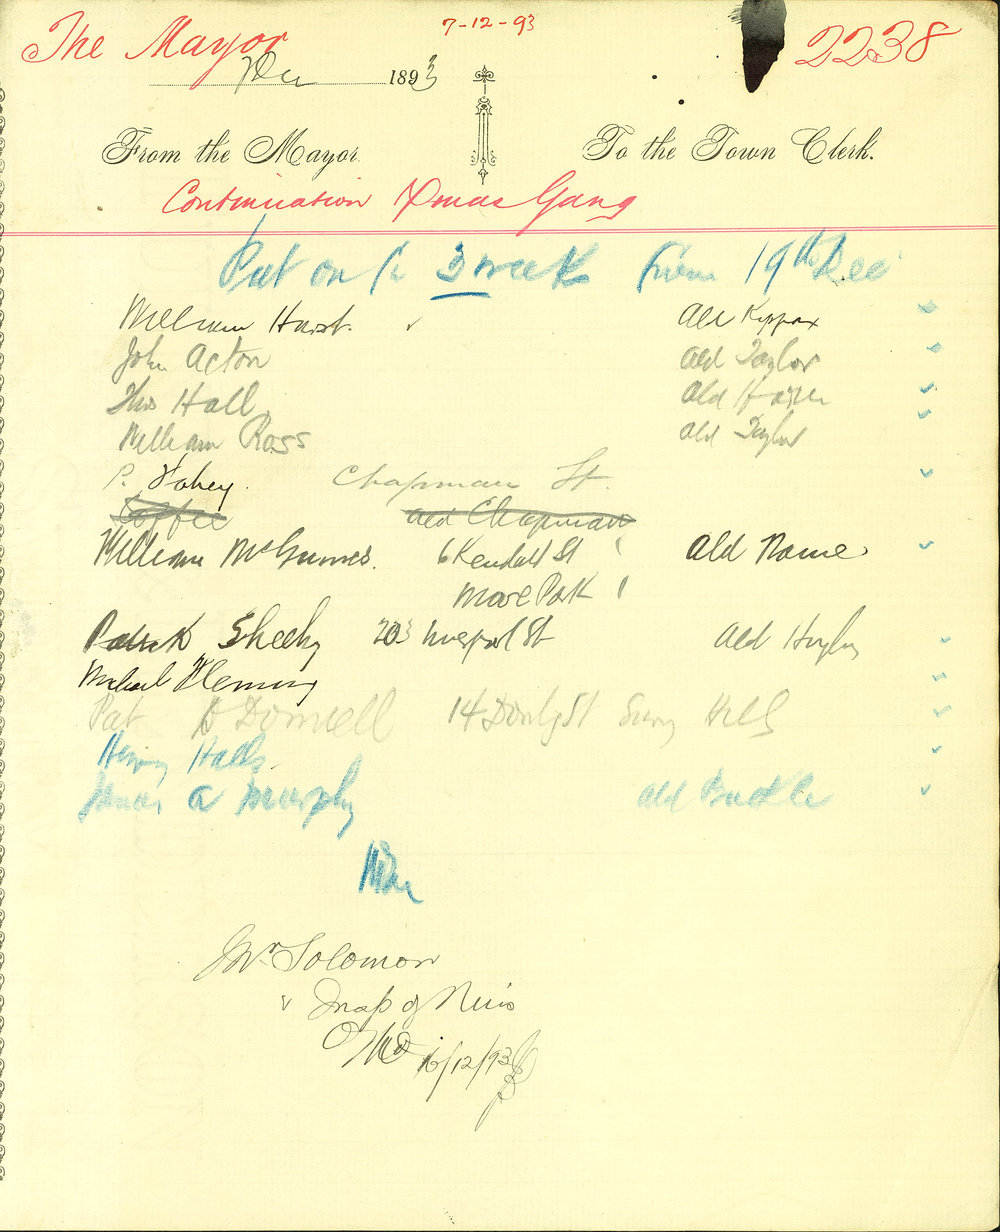 The Mayor
7-12-93
2238
7 Dec 1893
From the Mayor.
To the Town Clerk.
Continuation Xmas Gang
Put on for 3 week from 19th Dec
William Hurst. Ald Kippax
John Acton Ald Taylor
Thos Hall Ald
William Ross Ald Taylor
P. Fohey. Chapman St.
Coffee Ald Chapman
William McGuinnes. 6 Kendall St Ald
Moore Park
Patrick Sheehy 203 Liverpool St Ald Hughes
Michael Fleming
Pat O Donnell 14 St Surry Hills
Henry Halls
James A Murphy Ald Buckle
Mr Solomon
Insp of Nuis
16/12/93